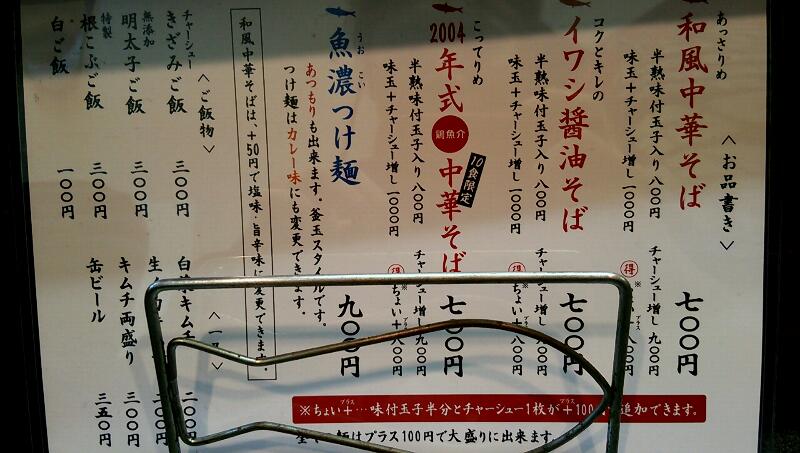 〈お品書き〉
あっさりめ
和風中華そば 七〇〇円
半熟味付玉子入り 八〇〇円
チャーシュー増し 九〇〇円
味玉+チャーシュー増し 一〇〇〇円
コクとキレの
イワシ醤油そば 七〇〇円
半熟味付玉子入り 八〇〇円
チャーシュー増し
味玉+チャーシュー増し 一〇〇〇円
得 ※ちょい+ 八〇〇円
こってりめ
2004年式 鶏魚介 中華そば 七〇〇円
10食限定
半熟味付玉子入り 八〇〇円
チャーシュー増し 九〇〇円
味玉+チャーシュー増し 一〇〇〇円
得 ※ちょい+ 八〇〇円
うお こい
魚濃つけ麺 九〇〇円
あつもりも出来ます。釜玉スタイルです。
つけ麺はカレー味にも変更できます。
和風中華そばは、+50円で塩味・旨辛味に変更できます。
〈ご飯物〉
チャーシュー
きざみご飯 三〇〇円
無添加
明太子ご飯 三〇〇円
特製
根こぶご飯 三〇〇円
白ご飯 一〇〇円
キムチ両盛り 三〇〇円
缶ビール 三五〇円
※ちょい+…味付玉子半分とチャーシュー1枚が+100円追加できます。
麺はプラス100円で大盛りに出来ます。